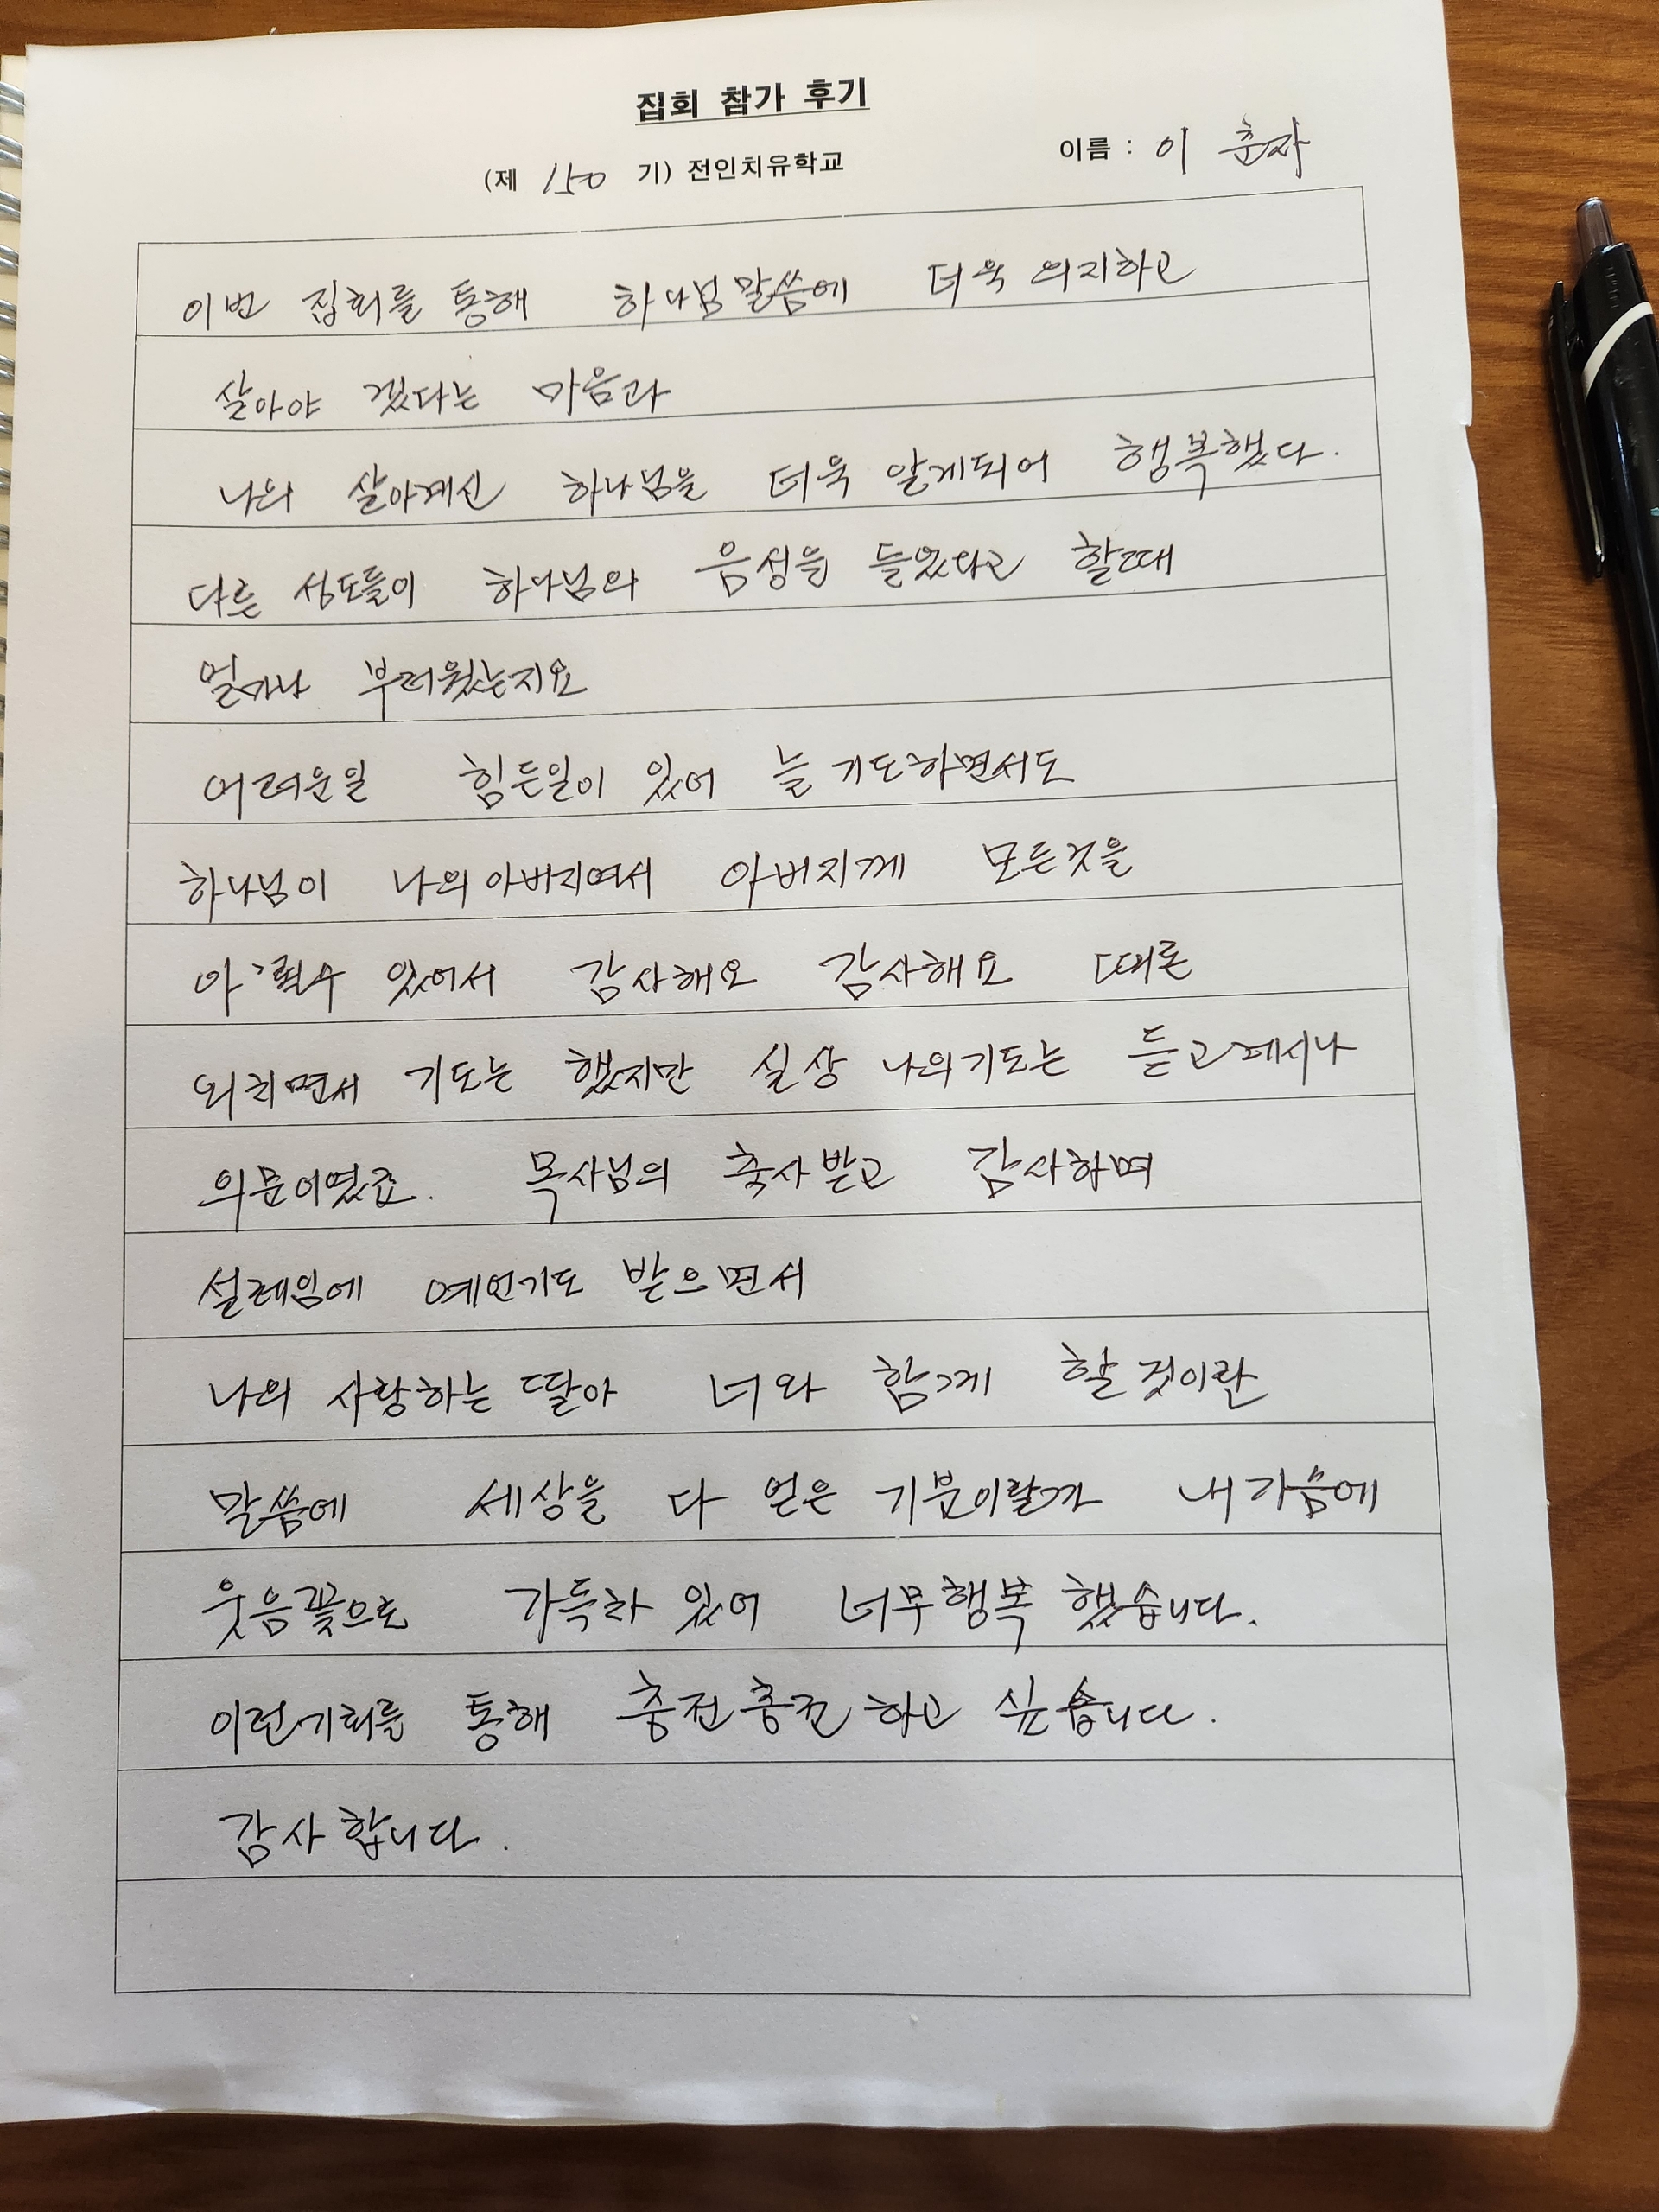 집회 참가 후기
(제 150 기) 전인치유학교
이름 : 이 춘자
이번 집회를 통해 하나님말씀에 더욱 의지하고
살아야 겠다는 마음과
나의 살아계신 하나님을 더욱 알게되어 행복했다.
다른 성도들이 하나님의 음성을 들었다고 할때
얼마나 부러웠는지요
어려운일 힘든일이 있어 늘 기도하면서도
하나님이 나의 아버지여서 아버지께 모든것을
수 있어서 감사해요 감사해요 때론
외치면서 기도는 했지만 실상 나의기도는 듣고계시나
의문이였죠. 목사님의 축사받고 감사하며
설레임에 예언기도 받으면서
나의 사랑하는 딸아 너와 함께 할것이란
말씀에 세상을 다 얻은 기분이랄까 내가슴에
웃음꽃으로 가득차 있어 너무행복 했습니다.
이런기회를 통해 충전충전 하고 싶습니다.
감사합니다.